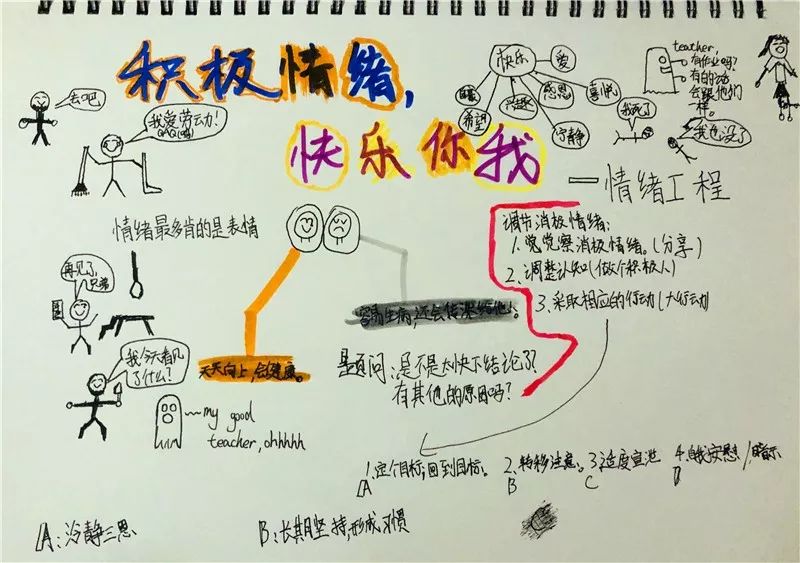 积极情绪,
快乐你我
一情绪工程
快乐
爱
喜悦
感恩
宁静
兴趣
希望
teacher,
有作业吗?
有的话
会跟他们
一样。
我死了
我也没了
去吧
我爱劳动!
QAQ(呜)
情绪最多肯的是表情
再见了,
兄弟
我今天看见
了什么?
my good
teacher, ohhhhh
天天向上,会健康。
容易生病,还会传染给他人。
调节消极情绪:
1.觉觉察消极情绪。(分享)
2.调整认知(做个积极人)
3.采取相应的行动(大行动)
是不是太快下结论了?
有其他的原因吗?
1.定个目标,回到目标。
A
2.转移注意。
B
3.适度宣泄
C
4.自我安慰/暗示
D
A:冷静三思
B:长期坚持,形成习惯